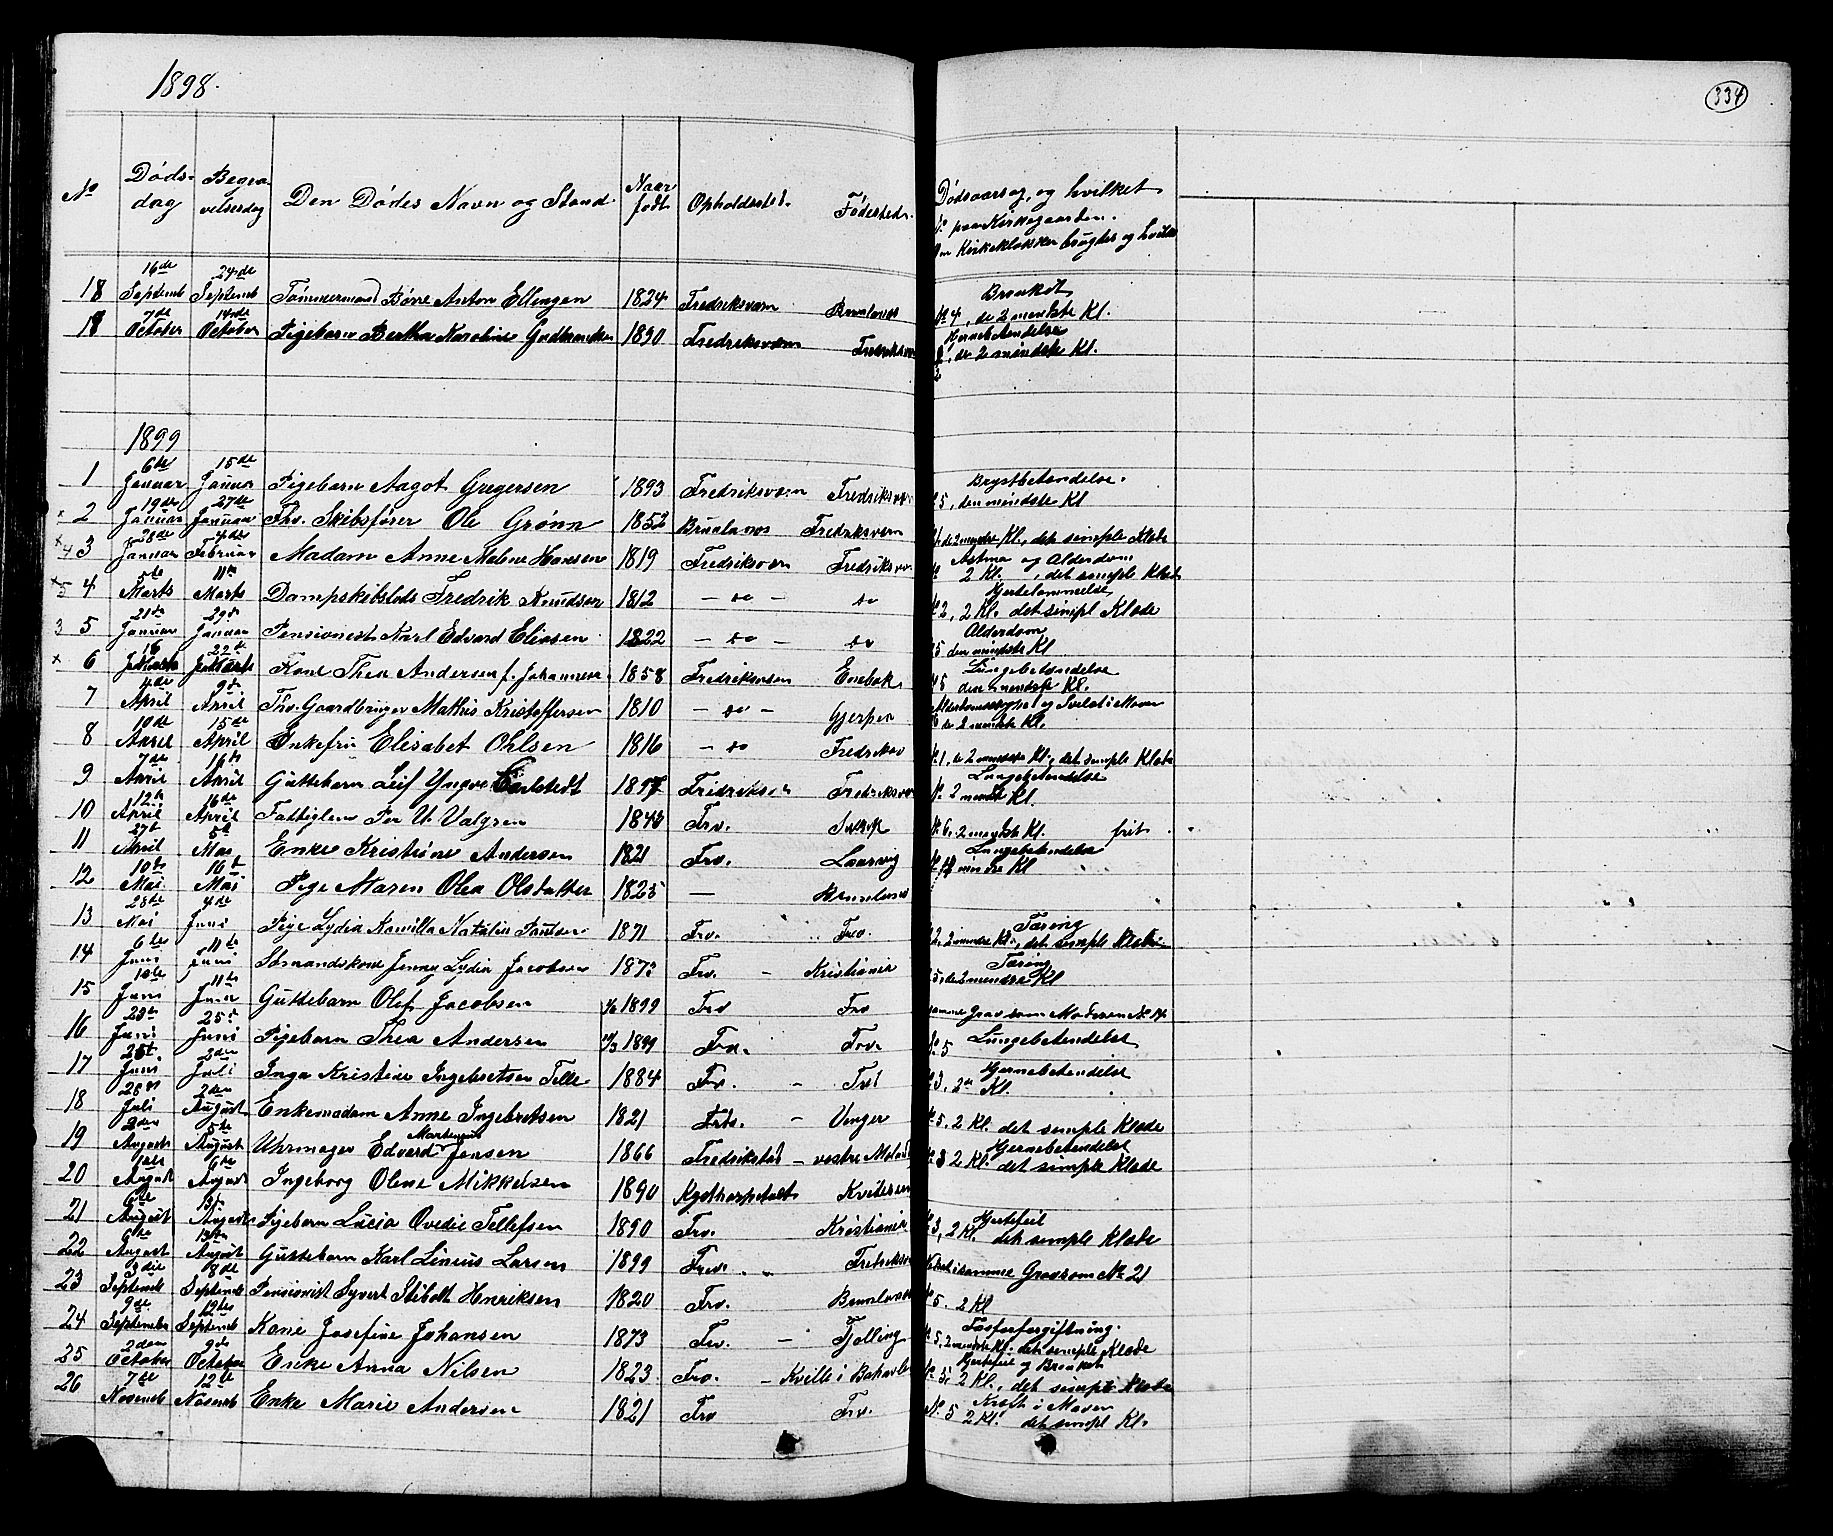 1898.
334
No
Døds-
dag
Begra-
velsesdag
Den Dødes Navn og Stand.
Naar
født
Opholdssted.
Fødested.
Dødsaarsag, og hvilket
No paa Kirkegaarden.
Om Kirkeklokken brugtes og hvilke
18 16de Septemb 24de Septemb Tømmermand Børre Anton Ellingsen 1824 Fredriksværn Brunlanes Bronkit
No 4, de 2 mindste Kl.
18 7de October 14de October Pigebarn Bertha Karoline 1890 Fredriksværn Fredriksv Hjernebetendelse
, de 2 mindste Kl.
1899
1 6te Januar 15de Januar Pigebarn Aagot Gregersen 1893 Fredriksværn Fredriksværn Brystbetendelse.
No 5, den mindste Kl
x 2 19de Januar 27de Januar Frv. Skibsfører Ole Grønn 1852 Brunlanes Fredriksværn
de 2 mindre Kl, det simple Klæde
x 4 3 28de Januar 4de Februar Madam Anne Malene Hansen 1819 Fredriksværn Fredriksv. Astma og Alderdom
2 Kl. , det simple Klæde
x 5 4 5te Marts 11te Marts Dampskibslods Fredrik Knudsen 1812 - do - do Hjertelammelse
No 2, 2 Kl. det simpl Klæde
3 5 21de Januar 29de Januar Pensionist Karl Edvard Eliasen 1822 - do - do Alderdom
5 den mindste Kl
x 6 16 Marts 22de Marts Kone Thea Andersen f. Johannesen 1858 Fredriksværn Enebak Lungebetendelse
No 5 den mindste Kl.
7 4de April 9de April Frv. Gaardbruger Mathis Kristoffersen 1810 - do - Gjerpen Alderdomssvaghed og Svulst i Maven
de 2 mindste Kl.
8 10de April 15de April Enkefru Elisabet Ohlsen 1816 - do Fredriksv
No 1, de 2 mindre Kl, det simple Klæde
9 7de April 16de April Guttebarn Leif Yngve Carlstedt 1897 Fridriksv Fredriksværn Lungebetendelse
No 2 mindst Kl.
10 12te April 16de April Fattiglem Per U. Valgren 1843 Frv.
No 6. 2 mindste Kl. frit.
11 27de April 5te Mai Enke Kristine Andersen 1821 Frv. Laurvig Lungebetendelse
mindre Kl
12 10de Mai 16de Mai Pige Maren Olea Olstatter 1825 — Brunlanes
13 28de Mai 4de Juni Pige Lydia Kamilla Natalie Paulsen 1871 Frv. Frv. Tæring
2, 2 mindre Kl., det simple Klæde
14 6te Juni 11te Juni Sømandskone Jenny Lydia Jacobsen 1873 Frv. - Kristiania Tæring
5, de 2 mindre Kl
15 10de Juni 11te Juni Guttebarn Olaf Jacobsen 1899 Frv Frv
samme Grav som Moderen No 14.
16 23de Juni 25de Juni Pigebarn Thea Andersen 1899 Frv. Frv.
No 5 Lungebetendelse
17 25t. Juni 2den Juli Inga Kristine Ingebretsen Telle 1884 Frv. - Frv Hjernebetendelse
No 3, 2de Kl.
18 28de Juli 2den August Enkemadam Anne Ingebretsen 1821 Frv. - Unger
No 5. 2 Kl. det simple Klæde
19 2den August 5te August Uhrmager Edverd Martenius Jensen 1866 Fredrikstad - vestre Moland Hjernebetendelse
No 3 2 Kl. det simple Klæde
20 1ste August 6te August Ingeborg Olene Mikkelsen 1890 Kysthospitalet Kvitesen
21 6te August 13de August Pigebarn Lucia Ovedie Tellefsen 1890 Frv. Kristiania Hjertefeil
No 3, 2 Kl. det simple Klæde
22 6te August 13de August Guttebarn Karl Linius Larsen 1899 Frv. Fredriksv
i samme Grav som No 21
23 3die Septemb 8de Septemb Pensionist Syvert Stibolt Henriksen 1820 Frv. Brunlanes
No 5. 2 Kl
24 9de Septembe 12te Septemb Kone Josefine Johansen 1873 Frv. - Fjelling Fosforforgiftning.
No 5, 2 mindste Kl. det simple Klæde
25 2den October 9de October Enke Anna Nilsen 1823 Frv. - Kville i Bahuslen Hjertefeil og Bronkit
No 5, 2 Kl., det simple Klæde
26 7de Novemb 12te Novemb Enke Marie Andersen 1821 Frv Frv. Kræft i Maven
No. 5 2 Kl. det simpl Kl.